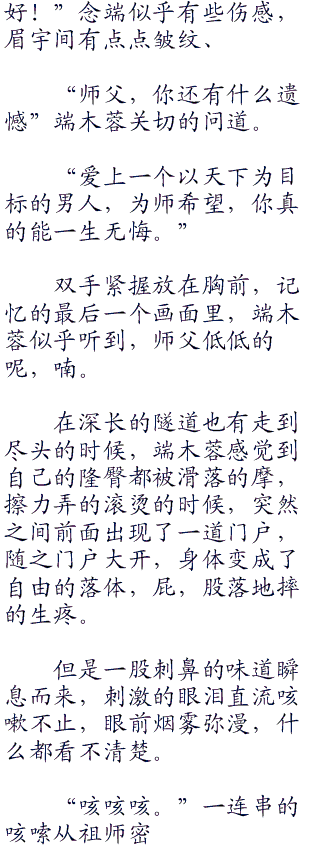 好！”念端似乎有些伤感，
眉宇间有点点皱纹、
“师父，你还有什么遗
憾”端木蓉关切的问道。
“爱上一个以天下为目
标的男人，为师希望，你真
的能一生无悔。”
双手紧握放在胸前，记
忆的最后一个画面里，端木
蓉似乎听到，师父低低的
呢，喃。
在深长的隧道也有走到
尽头的时候，端木蓉感觉到
自己的隆臀都被滑落的摩，
擦力弄的滚烫的时候，突然
之间前面出现了一道门户，
随之门户大开，身体变成了
自由的落体，屁，股落地摔
的生疼。
但是一股刺鼻的味道瞬
息而来，刺激的眼泪直流咳
嗽不止，眼前烟雾弥漫，什
么都看不清楚。
“咳咳咳。”一连串的
咳嗦从祖师密